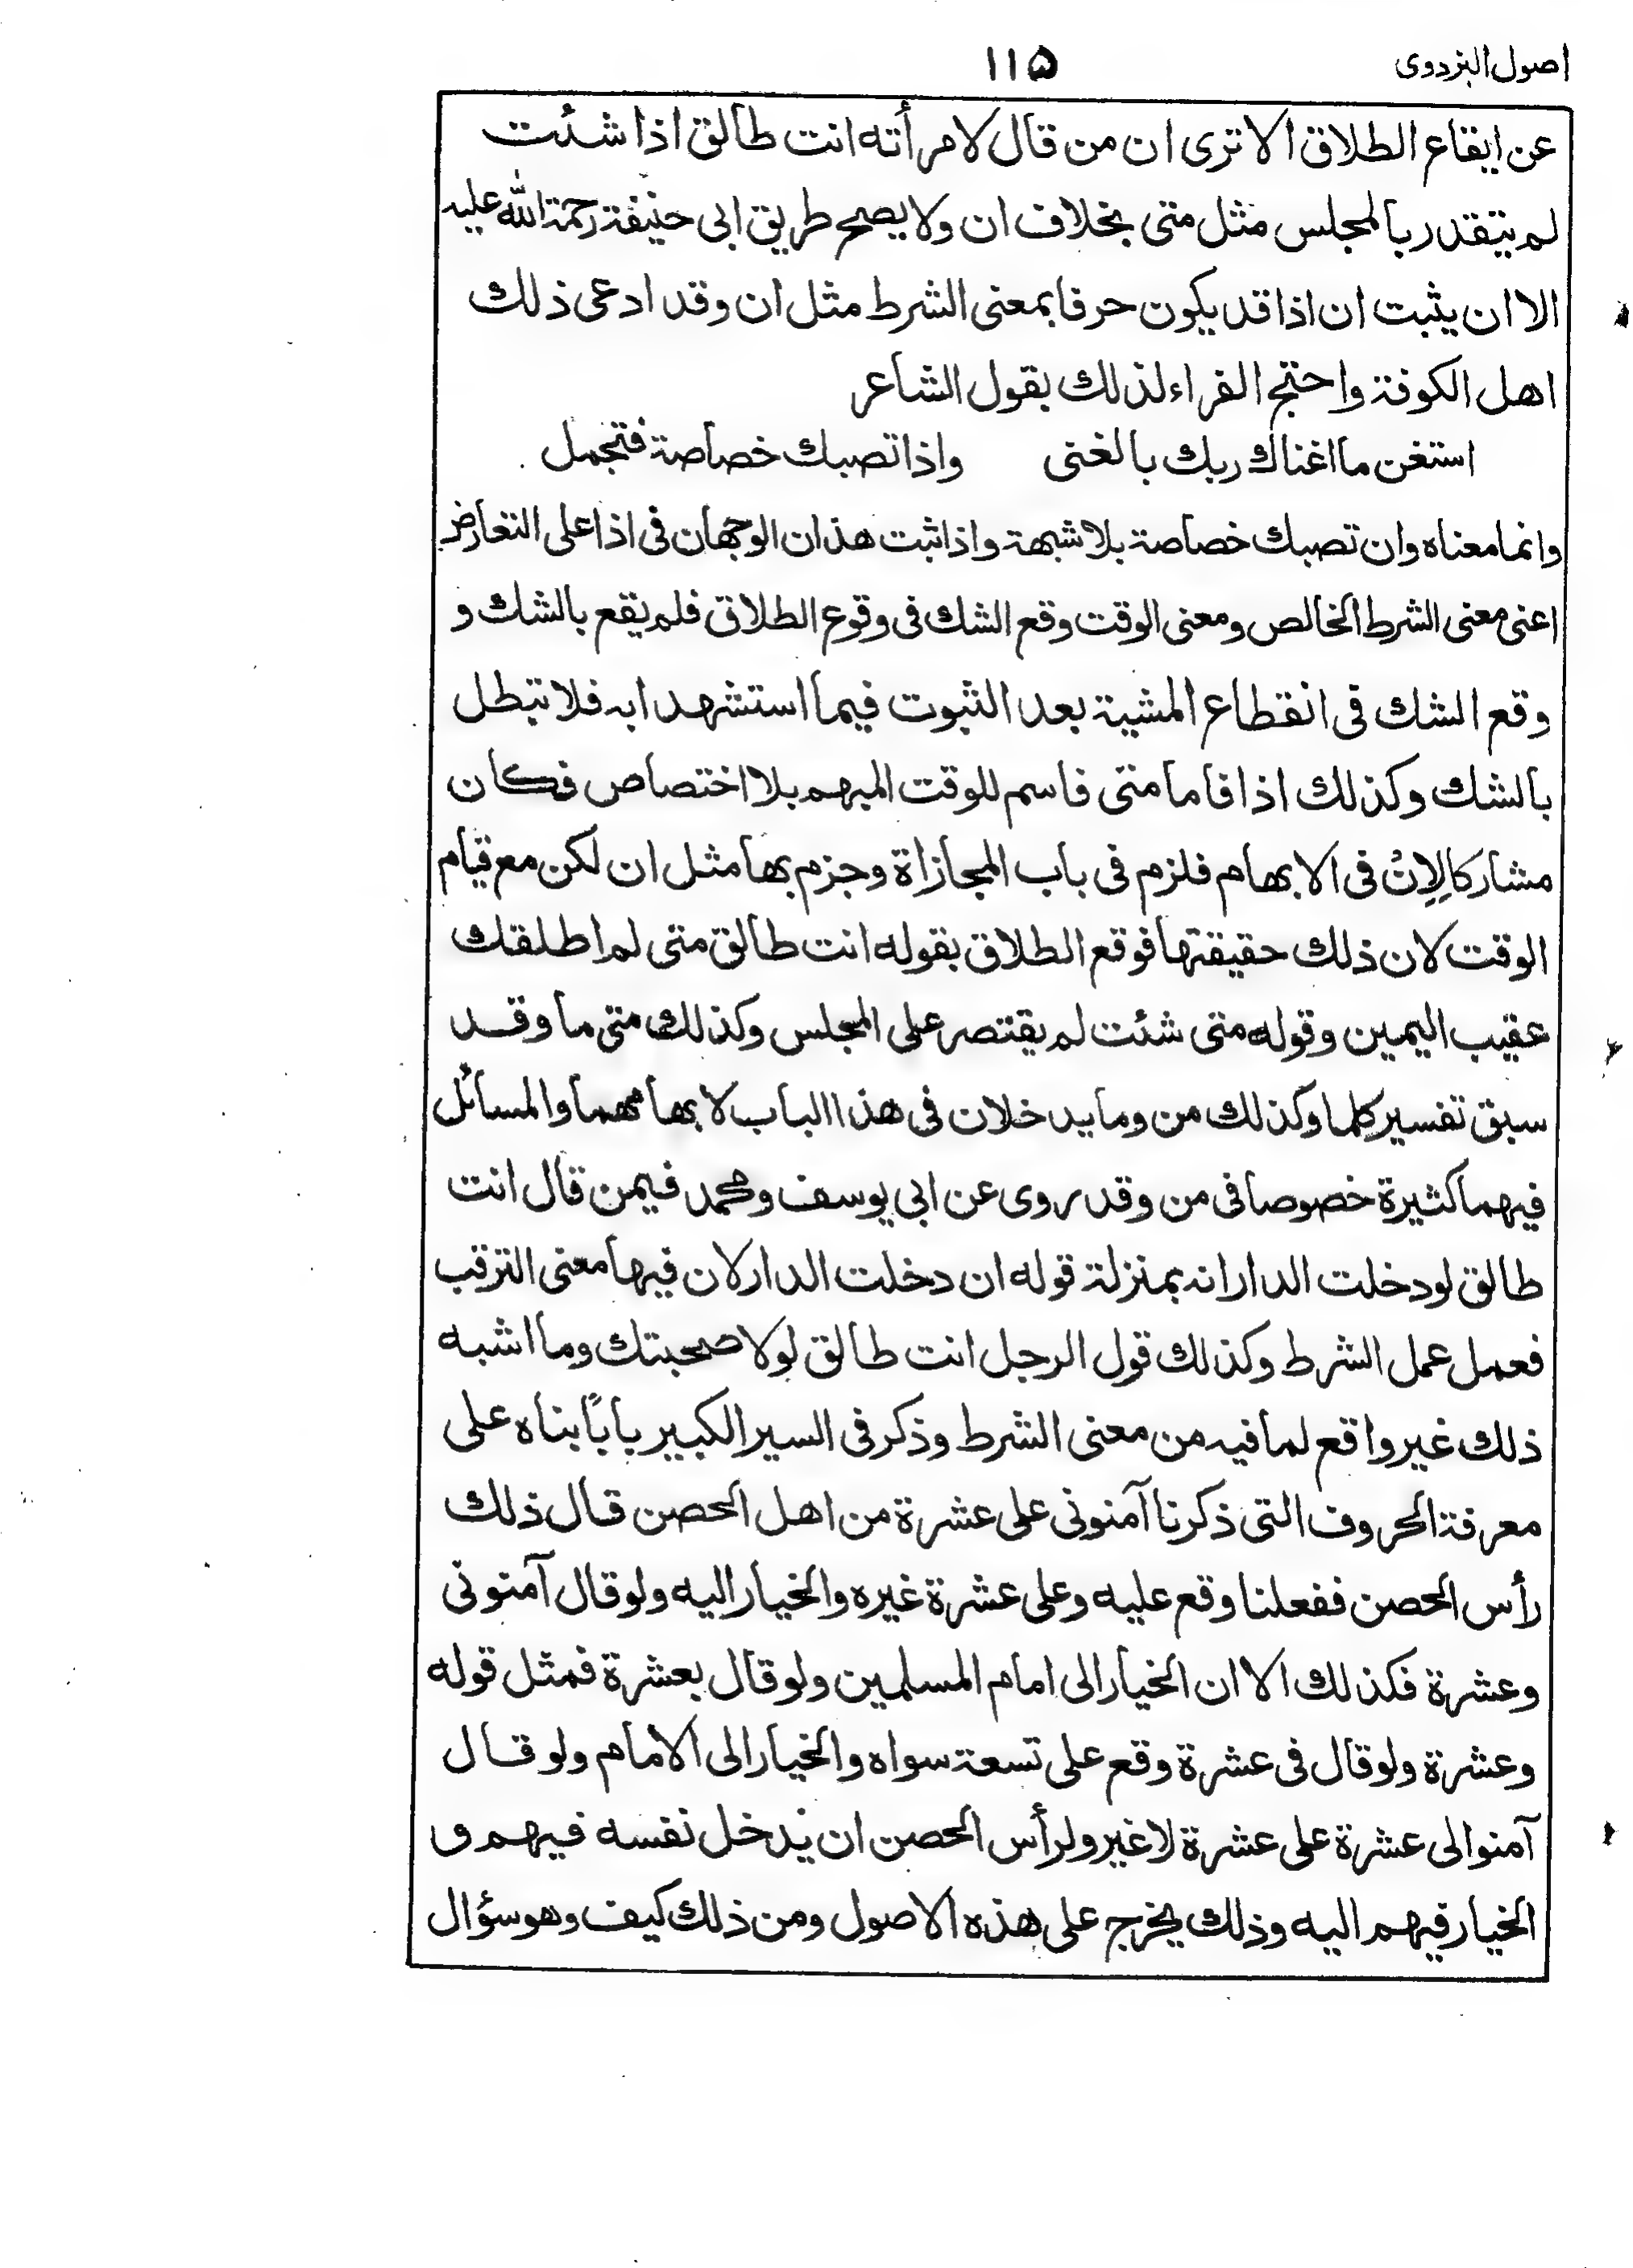 اصول البزدوی ۱۱۵
عن ايقاع الطلاق الا ترى ان من قال لامرأته انت طالق اذا شئت
لم يتقدر بالمجلس مثل متى بخلاف ان ولا يصح طريق ابى حنيفة رحمة الله عليه
الا ان يثبت ان اذا قد يكون حرفا بمعنى الشرط مثل ان وقد ادعى ذلك
اهل الكوفة واحتج الفراء لذلك بقول الشاعر
استغن ما اغناك ربك بالغنى واذا تصبك خصاصة فتجمل
وانما معناه وان تصبك خصاصة بلا شبهة واذا ثبت هذان الوجهان فى اذا على التعارض
اعنى معنى الشرط الخالص ومعنى الوقت وقع الشك فى وقوع الطلاق فلم يقع بالشك و
وقع الشك فى انقطاع المشية بعد الثبوت فيما استشهدا به فلا تبطل
بالشك وكذلك اذا فاما متى فاسم للوقت المبهم بلا اختصاص فكان
مشاركا لِاِنْ فى الابهام فلزم فى باب المجازاة وجزم بها مثل ان لكن مع قيام
الوقت لان ذلك حقيقتها فوقع الطلاق بقوله انت طالق متى لم اطلقك
عقيب اليمين وقوله متى شئت لم يقتصر على المجلس وكذلك متى ما وقد
سبق تفسير كلما وكذلك من وما يدخلان فى هذا الباب لابهامهما والمسائل
فيهما كثيرة خصوصا فى من وقد روى عن ابي يوسف ومحمد فيمن قال انت
طالق لو دخلت الدار انه بمنزلة قوله ان دخلت الدار لان فيها معنى الترقب
فعمل عمل الشرط وكذلك قول الرجل انت طالق لولا صحبتك وما اشبه
ذلك غير واقع لما فيه من معنى الشرط وذكر فى السير الكبير باباً بناه على
معرفة الحروف التى ذكرنا آمنونى على عشرة من اهل الحصن قال ذلك
رأس الحصن ففعلنا وقع عليه وعلى عشرة غيره والخيار اليه ولو قال آمنونى
وعشرة فكذلك الا ان الخيار الى امام المسلمين ولو قال بعشرة فمثل قوله
وعشرة ولو قال فى عشرة وقع على تسعة سواه والخيار الى الامام ولو قال
آمنوا لى عشرة على عشرة لا غير ولرأس الحصن ان يدخل نفسه فيهم و
الخيار فيهم اليه وذلك يخرج على هذه الاصول ومن ذلك كيف وهو سؤال